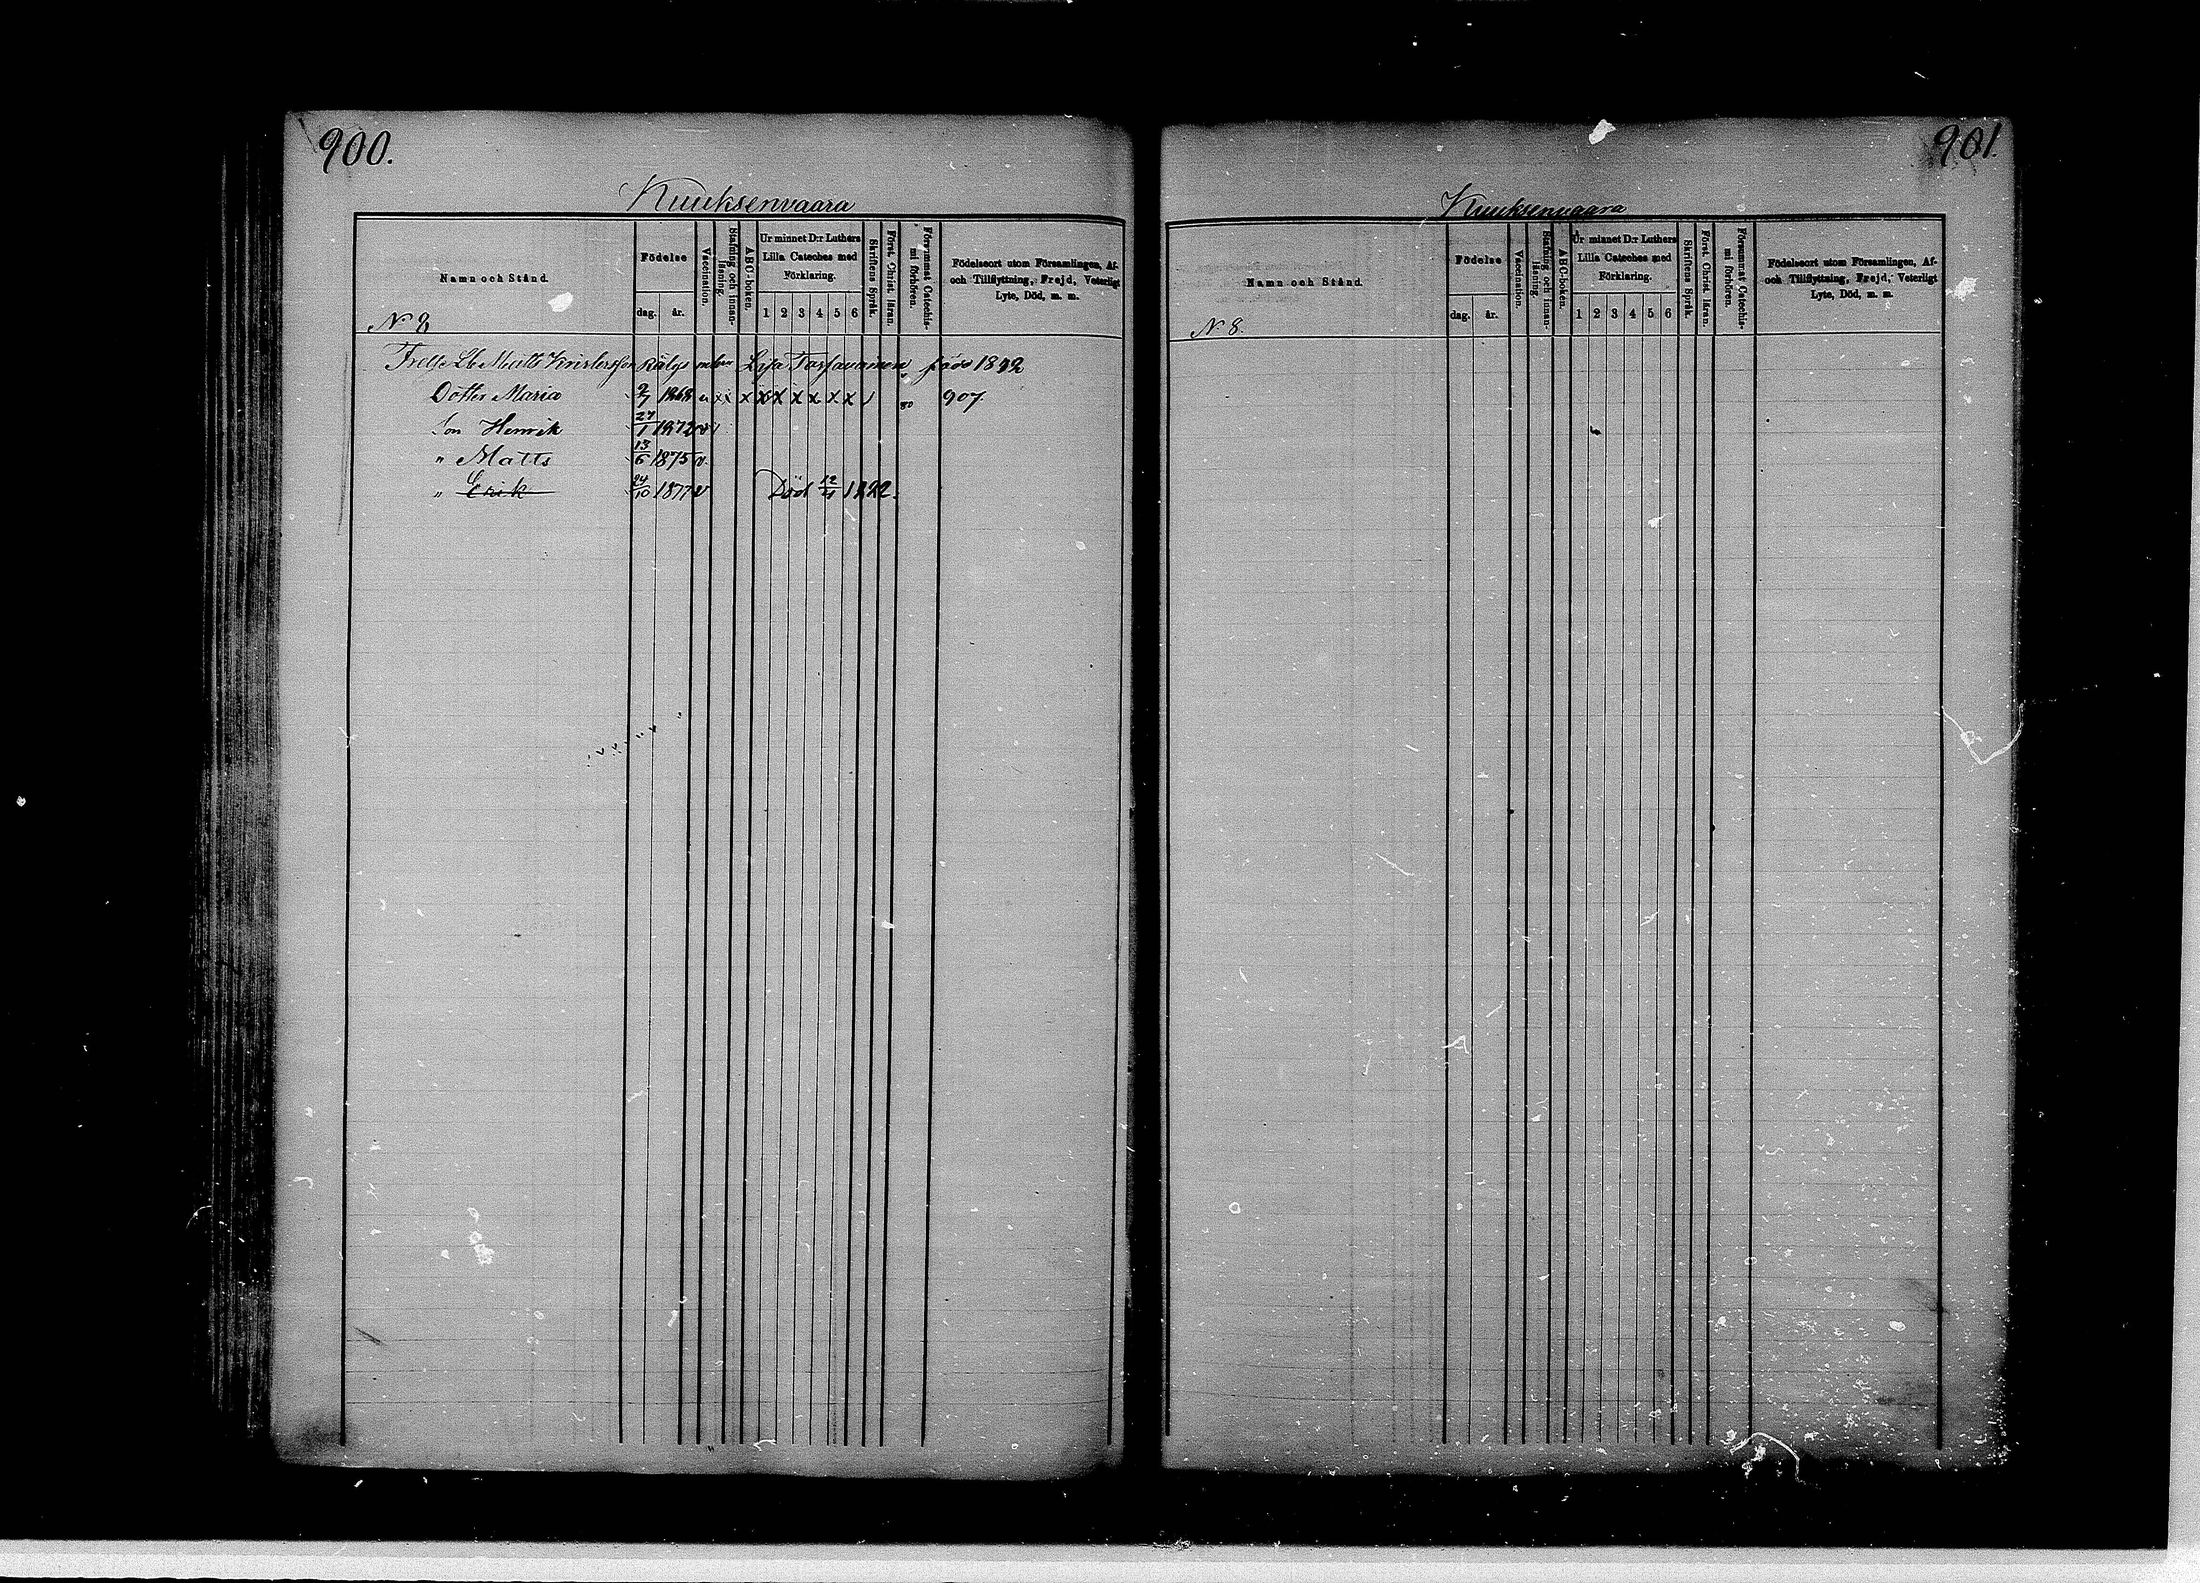 900.
Kuuksenvaara
Namn och Stånd.
Födelse
dag. år.
Vaccination.
Stafning och innan-
läsning.
ABC-boken.
Ur minnet D:r Luthers
Lilla Cateches med
Förklaring.
1 2 3 4 5 6
Skriftens Språk.
Först. Christ. läran.
Försummat Catechis-
mi förhören.
Födelseort utom Församlingen, Af-
och Tillflyttning, Frejd, Veterligt
Lyte, Död, m. m.
N 8
Lb Matts Kristersson Rälys enkan Lisa född
Dotter Maria 2/7 1868 v x x x x x x x x x 80 907.
Son Henrik 27/1 1872 v
" Matts 13/6 1875 v.
" Erik 24/10 1877 v Död
901.
Kuuksenvaara
Namn och Stånd.
Födelse
dag. år.
Vaccination.
Stafning och innan-
läsning.
ABC-boken.
Ur minnet D:r Luthers
Lilla Cateches med
Förklaring.
1 2 3 4 5 6
Skriftens Språk.
Först. Christ. läran.
Försummat Catechis-
mi förhören.
Födelseort utom Församlingen, Af-
och Tillflyttning, Frejd, Veterligt
Lyte, Död, m. m.
N 8.